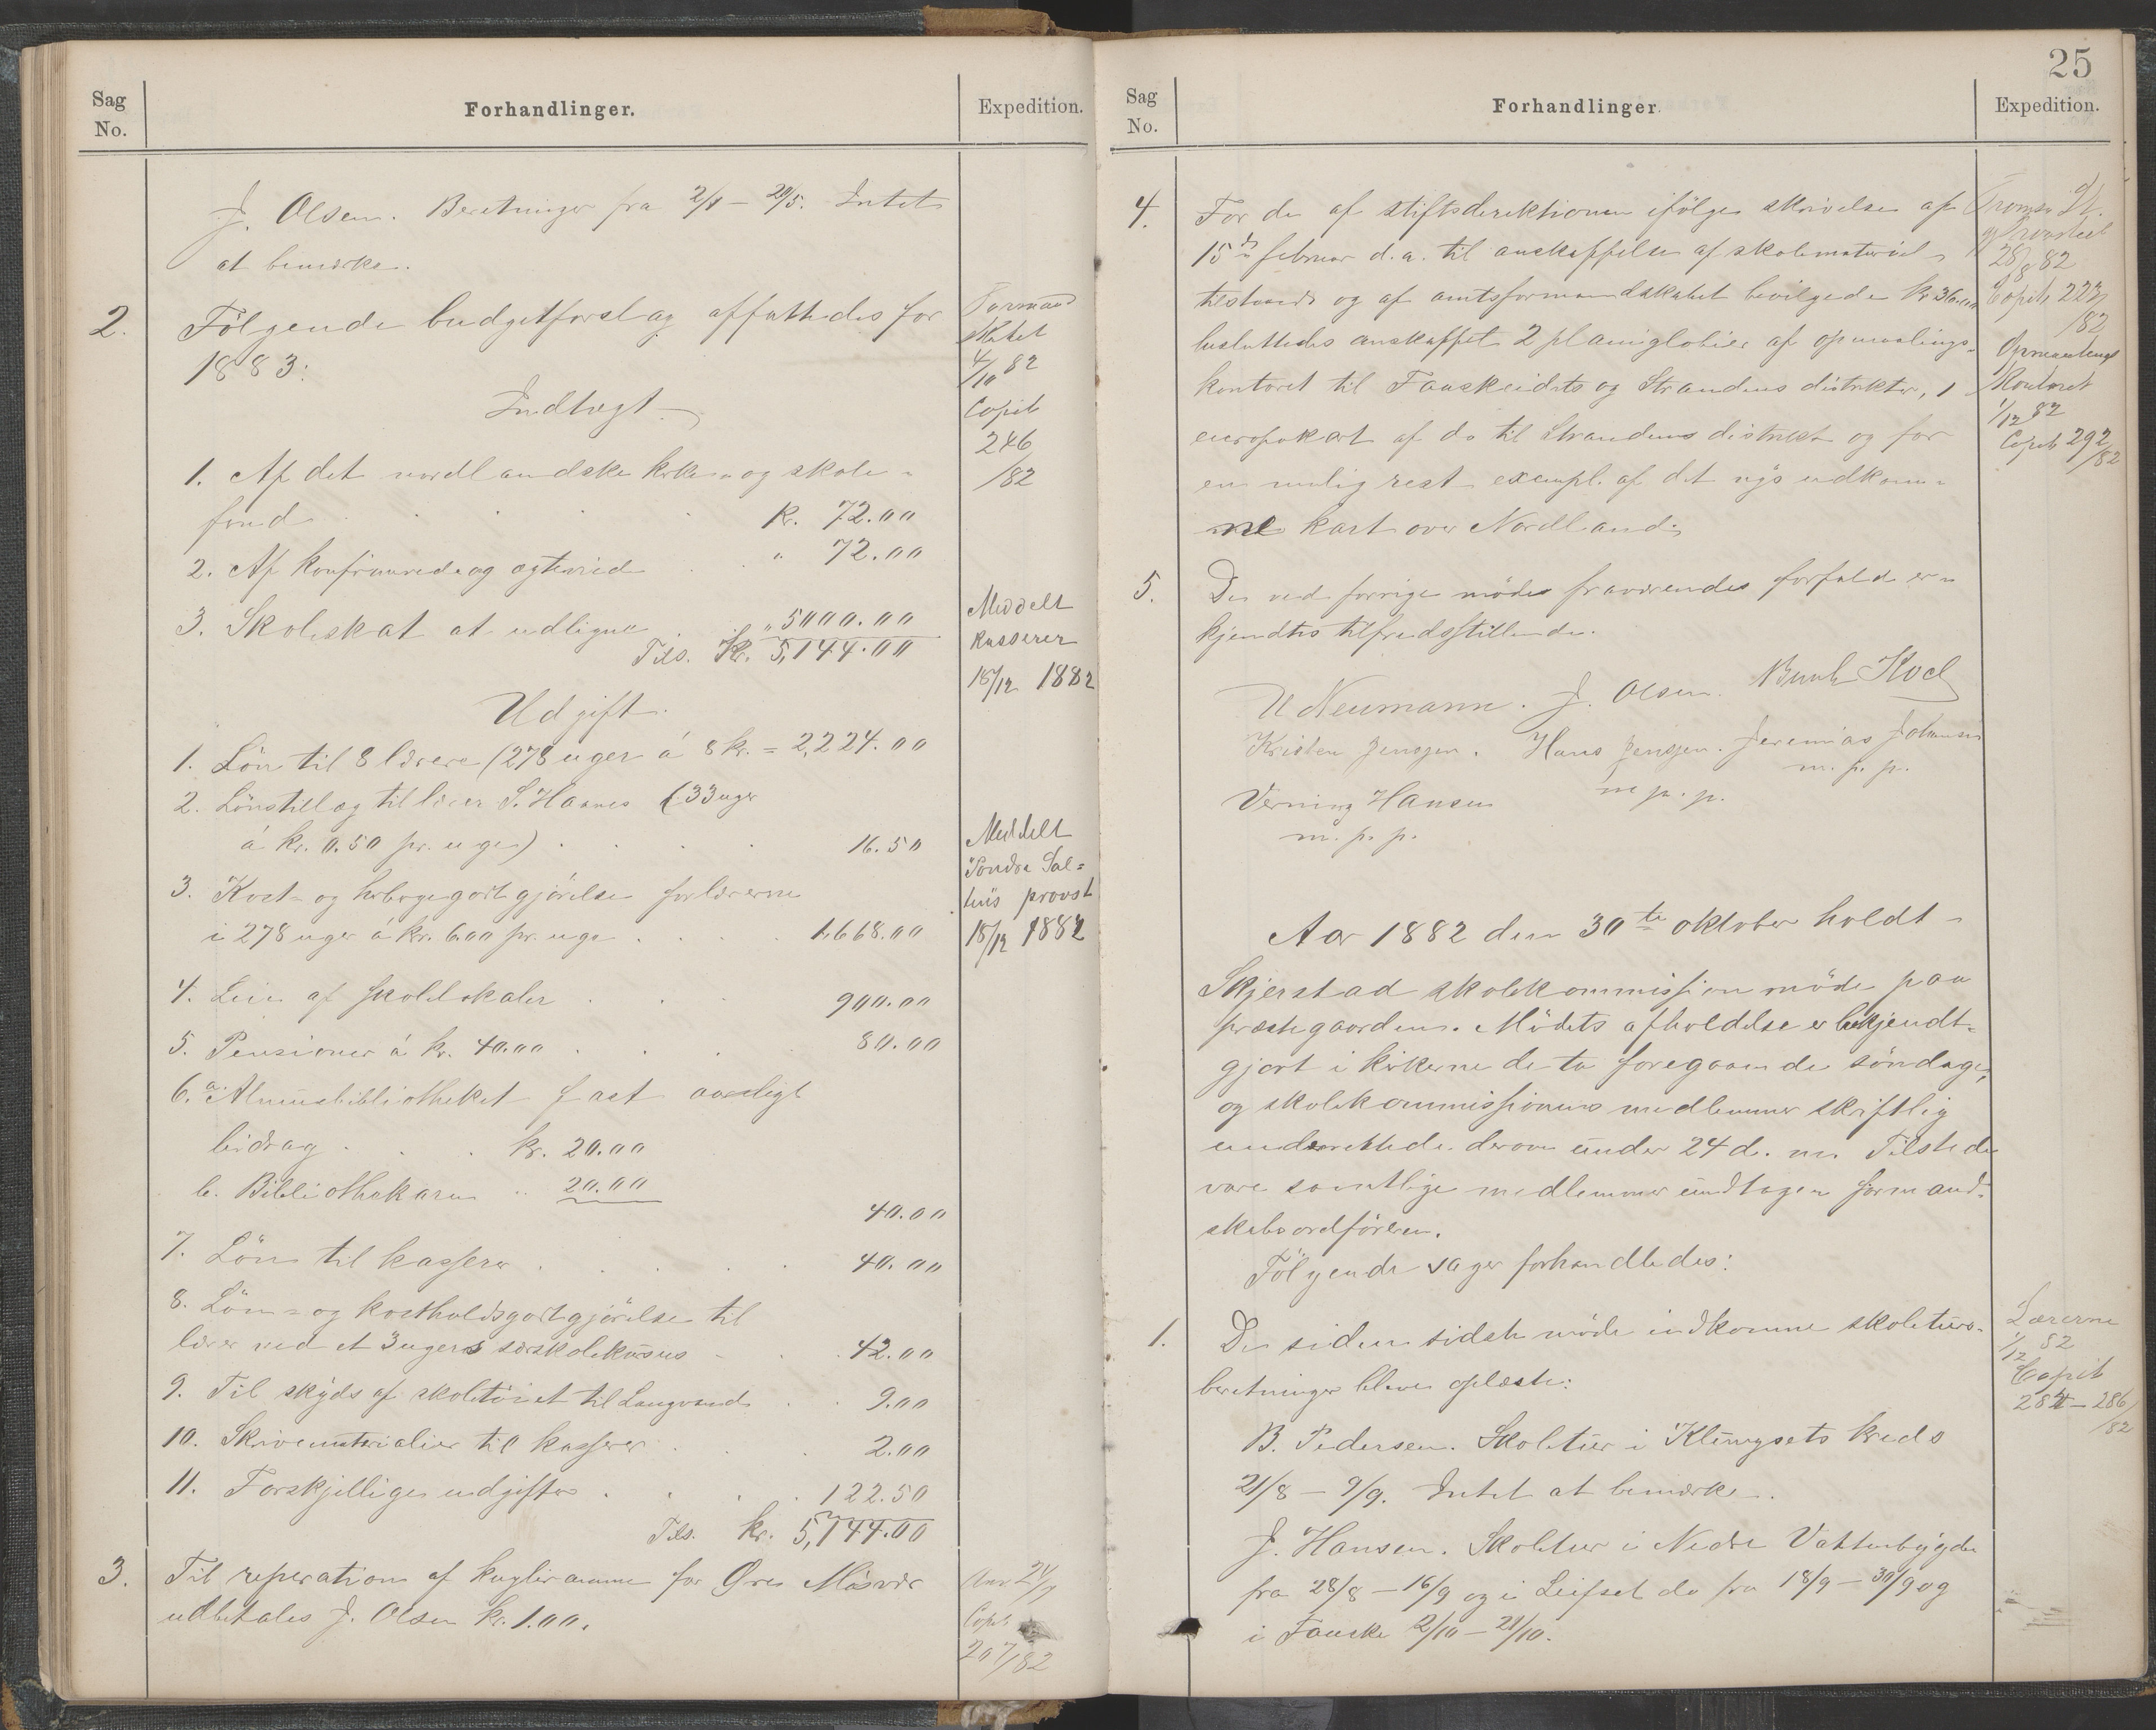 Sag
No.
Forhandlinger.
Expedition.
J. Olsen. Beretninger fra 2/1 – 21/5. Intet
at bemærke.
2.
Følgende budgetforslag affattedes for
1883:
Formand
skabet
4/10 82
Copib
246
/82
Indtægt
1. Af det nordlandske kirke- og skole-
fond . . . . kr. 72.00
2. Af konfirmerede og egteviede . . " 72.00
3. Skoleskat at udligne . . " 5000.00
Tils. Kr. 5,144.00
Meddelt
kasserer
18/12 1882
Udgift.
1. Løn til 8 lærere (278 uger á 8 kr. = 2,224.00
2. Lønstillæg til lærer S. Haanes (33 uger
á kr. 0.50 pr. uge) . . . . 16.50
Meddelt
Søndre Sal-
tens provst
18/12 1882
3. Kost- og herbergegodtgjørelse for lærerne
i 278 uger á kr. 6.00 pr. uge . . . . 1,668.00
4. Leie af skolelokaler . . . 900.00
5. Pensioner á kr. 40.00 . . . 80.00
6. a. Almuebibliotheket fast aarligt
bidrag . . . kr. 20.00
b. Bibliothekaren " 20.00
40.00
7. Løn til kasserer . . . . . 40.00
8. Løn- og kostholdsgodtgjørelse til
lærer ved et 3 ugers særskolekursus - . . 42.00
9. Til skyds af skoletøiet til Langvand . . 9.00
10. Skrivematerialier til kasserer . . . 2.00
11. Forskjellige udgifter . . . . 122.50
Tils. kr. 5,144.00
3.
Til reperation af kugleramme for Øvre
udbetales J. Olsen kr. 1.00.
Copib
207/82
25
Sag
No.
Forhandlinger.
Expedition.
4.
For de af stiftsdirektionen ifølge skrivelse af
15de februar d.a. til anskaffelse af skolemateriel
tilstaaede og af amtsformandskabet bevilgede kr 36.00
besluttedes anskaffet 2 planiglobier af opmaalings-
kontoret til Fauskeidets og Strandens distrikter, 1
europakart af do til Strandens distrikt og for
en mulig rest exempl. af det nys udkom-
ne kart over Nordland.
Tromsø St.
28/8 82
Copib 223
/82
Opmaalings
kontoret
1/12 82
Copib 292
/82
5.
De ved forrige møde fraværendes forfald er-
kjendtes tilfredsstillende.
U Neumann. J. Olsen. Bernh Koch
Kristen Jenssen. Hans Jenssen. Jeremias Johansen
m. p. p.
m. p. p.
Verning Hansen
m. p. p.
Aar 1882 den 30te oktober holdt
Skjerstad skolekommission møde paa
præstegaarden. Mødets afholdelse er bekjendt-
gjort i kirkerne de to foregaaende søndage,
og skolekommissionens medlemmer skriftlig
underrettede derom under 24 d. m. Tilstede
vare samtlige medlemmer undtagen formand-
skabsordføreren.
Følgende sager forhandledes:
1.
De siden sidste møde indkomne skoleturs-
beretninger bleve oplæste:
Lærerne
1/12 82
Copib
284 – 286
/82
B. Pedersen. Skoletur i Klungsets kreds
21/8 – 9/9. Intet at bemærke.
J. Hansen. Skoletur i Nedre Vatterbygde
fra 28/8 – 16/9 og i Leifset do fra 18/9 – 30/9 og
i Fauske 2/10 – 21/10.